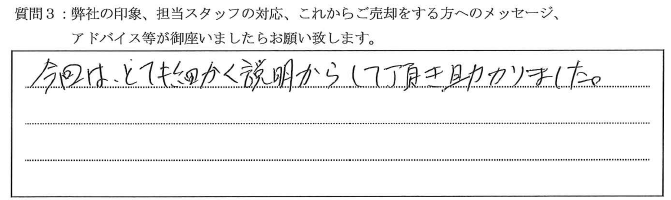 質問３：弊社の印象、担当スタッフの対応、これからご売却をする方へのメッセージ、
アドバイス等が御座いましたらお願い致します。
今回は、とても細かく説明からして頂き助カリました。